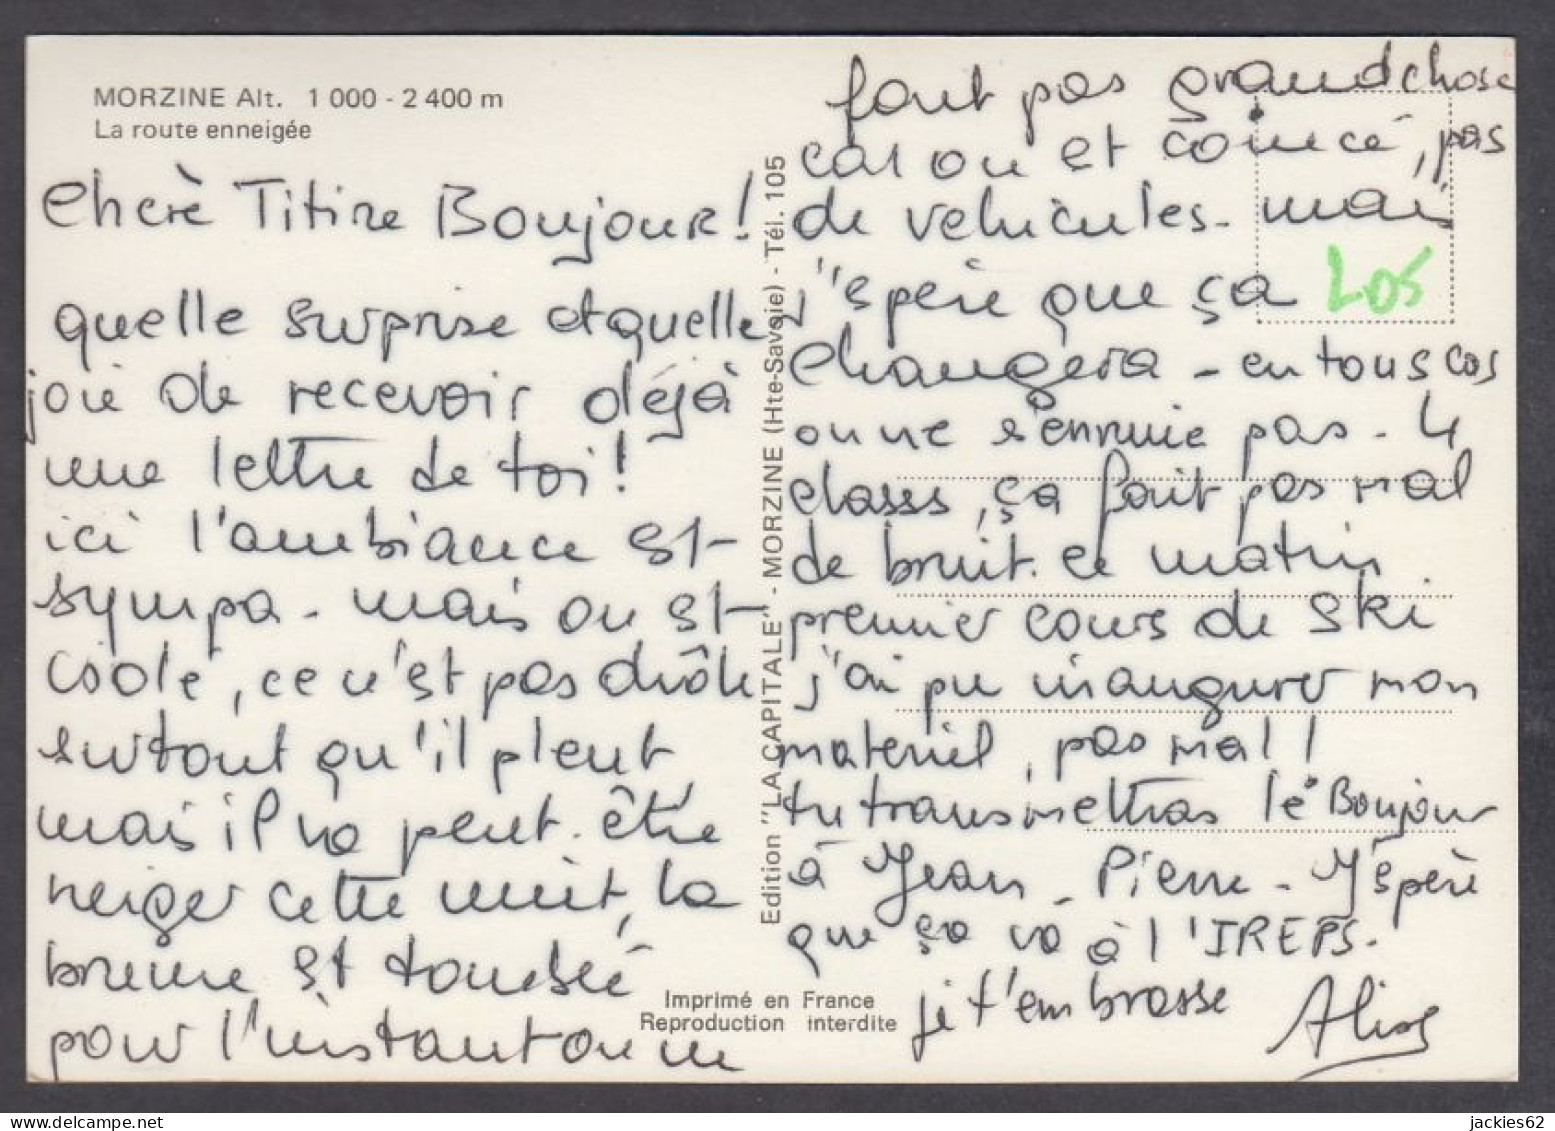 MORZINE Alt. 1 000 - 2 400 m
La route enneigée
Chère Titine Bonjour!
quelle surprise et quelle
joie de recevoir déjà
une lettre de toi!
ici l'ambiance est
sympa - mais on est
isolé, ce n'est pas drôle
surtout qu'il pleut,
mais il va peut-être
neiger cette nuit, la
brume est tombée
pour l'instant on ne
Edition "LA CAPITALE" - MORZINE (Hte-Savoie) - Tél. 105
Imprimé en France
Reproduction interdite
fait pas grand chose
car on est coincé, pas
de véhicules - mais
j'espère que ça
LOS
changera - en tous cas
on ne s'ennuie pas - 4
classes, ça fait pas mal
de bruit. ce matin
premier cours de ski
j'ai pu inaugurer mon
matériel, pas mal!
tu transmettras le Bonjour
à Jean-Pierre - J'espère
que ça va à l'IREPS.
je t'embrasse
jackies62